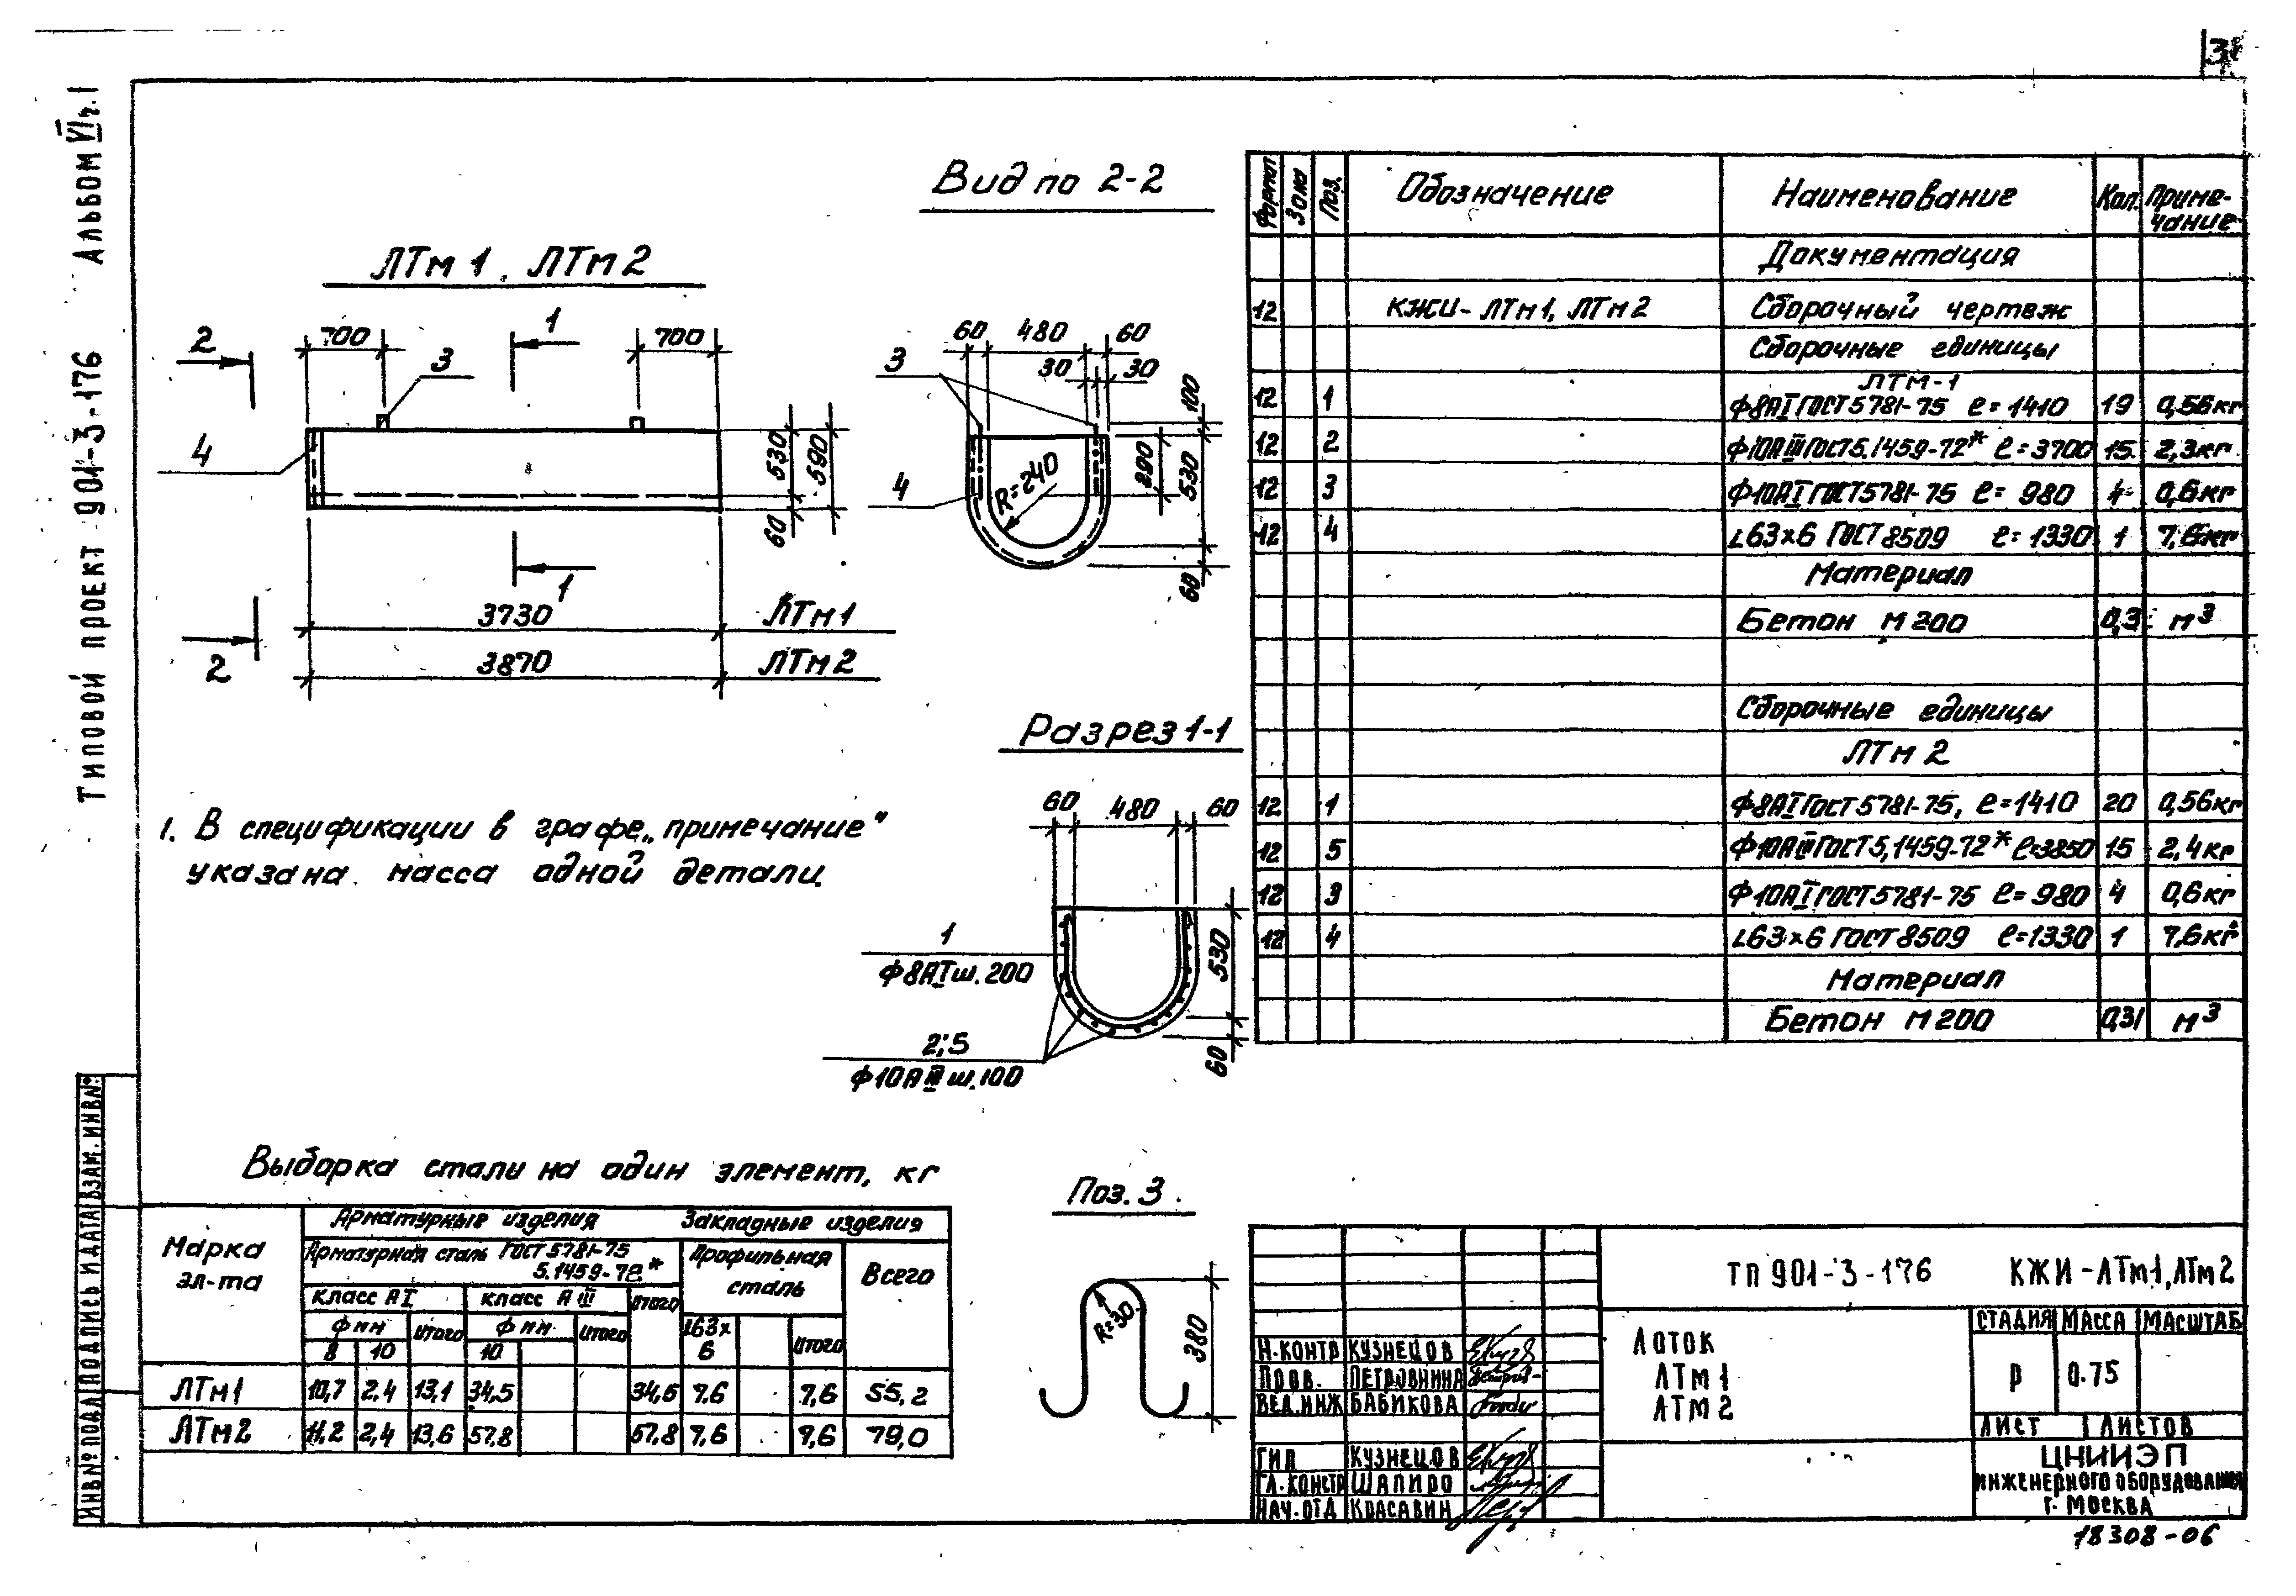 Типовой проект 901-3-176 Альбом VI ч.1
ЛТм 1, ЛТм 2
2
700
3
1
700
4
530
590
60
1
2
3730 ЛТм 1
3870 ЛТм 2
Вид по 2-2
60 480 60
30 30
3
100
4
R=240
290
530
60
Разрез 1-1
60 480 60
1
ф8АI ш.200
2;5
ф10АIII ш.100
530
60
1. В спецификации в графе „примечание"
указана масса одной детали.
Формат Зона Поз. Обозначение Наименование Кол. Приме-
чание
Документация
12 КЖИ- ЛТм1, ЛТм 2 Сборочный чертеж
Сборочные единицы
ЛТм-1
12 1 ф8АI ГОСТ 5781-75 ℓ=1410 19 0,56кг
12 2 ф10АIII ГОСТ 5.1459-72* ℓ=3700 15 2,3кг
12 3 ф10АI ГОСТ 5781-75 ℓ= 980 4 0,6кг
12 4 ∟63×6 ГОСТ 8509 ℓ=1330 1 7,6кг
Материал
Бетон М 200 0,3 м³
Сборочные единицы
ЛТм 2
12 1 ф8АI ГОСТ 5781-75, ℓ=1410 20 0,56кг
12 5 ф10АIII ГОСТ 5,1459-72* ℓ=3850 15 2,4кг
12 3 ф10АI ГОСТ 5781-75 ℓ=980 4 0,6кг
12 4 ∟63×6 ГОСТ 8509 ℓ=1330 1 7,6кг
Материал
Бетон М 200 0,31 м³
Выборка стали на один элемент, кг
Марка
эл-та
Арматурные изделия Закладные изделия
Арматурная сталь ГОСТ 5781-75
5.1459-72*
Профильная
сталь
Всего
класс АI класс АIII Итого
ф мм Итого ф мм Итого ∟63×
6 Итого
8 10 10
ЛТм1 10,7 2.4 13,1 34,5 34,5 7.6 7,6 55,2
ЛТм2 11,2 2,4 13,6 57,8 57,8 7,6 7,6 79,0
Поз. 3
R=30
380
ТП 901-3-176 КЖИ-ЛТм1, ЛТм 2
Лоток
ЛТм 1
ЛТм 2
Стадия Масса Масштаб
Р 0.75
Лист 1 Листов
ЦНИИЭП
инженерного оборудования
г. Москва
Н.контр Кузнецов
Пров. Петровнина
Вед.инж Бабикова
ГИП Кузнецов
Гл.констр Шапиро
Нач.отд Красавин
Инв№ подл Подпись и дата Взам.инв№
18308-06